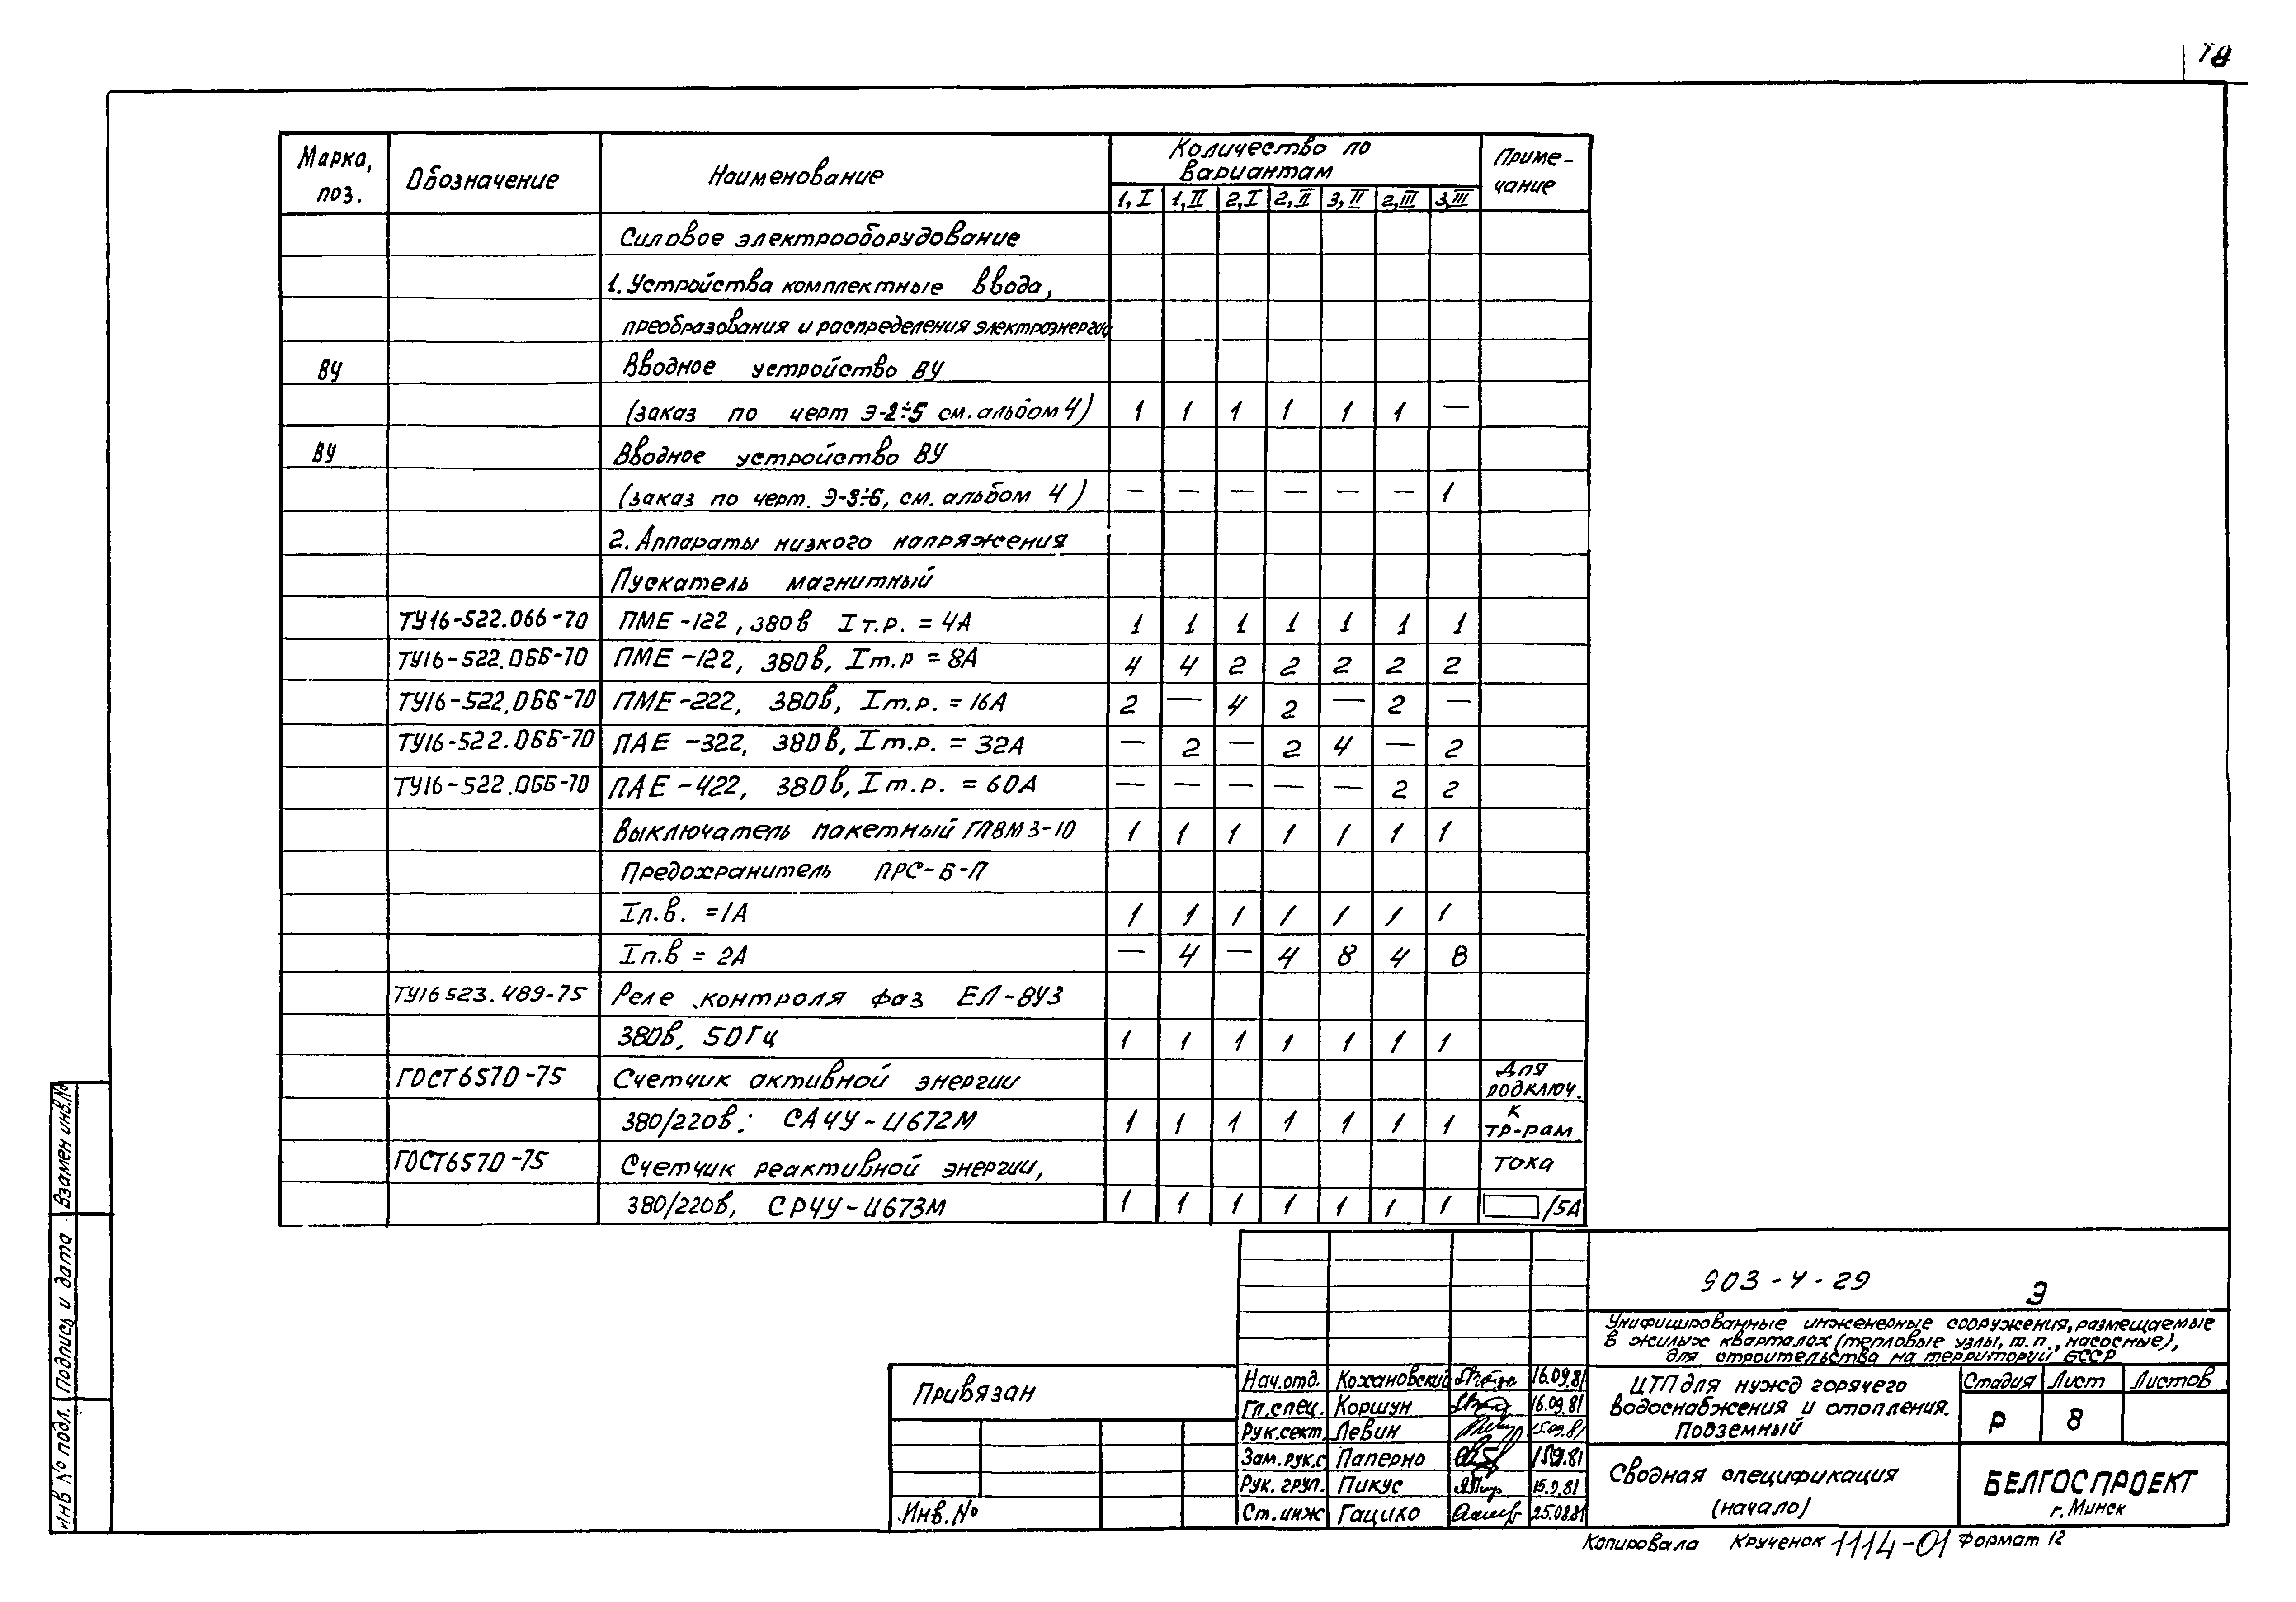 Марка, поз. Обозначение Наименование Количество по вариантам Приме-чание
1,I 1,II 2,I 2,II 3,II 2,III 3,III
Силовое электрооборудование
1. Устройства комплектные ввода,
преобразования и распределения электроэнергии
ВУ Вводное устройство ВУ
(заказ по черт Э-2÷5 см. альбом 4) 1 1 1 1 1 1 —
ВУ Вводное устройство ВУ
(заказ по черт. Э-3÷6, см. альбом 4) — — — — — — 1
2. Аппараты низкого напряжения
Пускатель магнитный
ТУ16-522.066-70 ПМЕ-122, 380в Iт.р. = 4А 1 1 1 1 1 1 1
ТУ16-522.066-70 ПМЕ-122, 380в, Iт.р = 8А 4 4 2 2 2 2 2
ТУ16-522.066-70 ПМЕ-222, 380в, Iт.р. = 16А 2 — 4 2 — 2 —
ТУ16-522.066-70 ПАЕ-322, 380в, Iт.р. = 32А — 2 — 2 4 — 2
ТУ16-522.066-70 ПАЕ-422, 380в, Iт.р. = 60А — — — — — 2 2
Выключатель пакетный ГПВМ3-10 1 1 1 1 1 1 1
Предохранитель ПРС-6-П
Iп.в. = 1А 1 1 1 1 1 1 1
Iп.в = 2А — 4 — 4 8 4 8
ТУ16 523.489-75 Реле контроля фаз ЕЛ-8У3
380в, 50Гц 1 1 1 1 1 1 1
ГОСТ6570-75 Счетчик активной энергии Для подключ.
380/220в; СА4У-И672М 1 1 1 1 1 1 1 к тр-рам
ГОСТ6570-75 Счетчик реактивной энергии, тока
380/220в, СР4У-И673М 1 1 1 1 1 1 1 /5А
903-4-29 Э
Унифицированные инженерные сооружения, размещаемые
в жилых кварталах (тепловые узлы, т.п., насосные),
для строительства на территории БССР
Привязан
Инв. №
Нач.отд. Кохановский 16.09.81
Гл.спец. Коршун 16.09.81
Рук.сект. Левин 15.09.81
Зам.рук.с Паперно 15.9.81
Рук. груп. Пикус 15.9.81
Ст.инж Гацихо 25.08.81
ЦТП для нужд горячего
водоснабжения и отопления.
Подземный
Стадия Лист Листов
Р 8
Сводная спецификация
(начало)
БЕЛГОСПРОЕКТ
г. Минск
Копировала Крученок 1114-01 Формат 12
Взамен инв.№
Подпись и дата
Инв № подл.